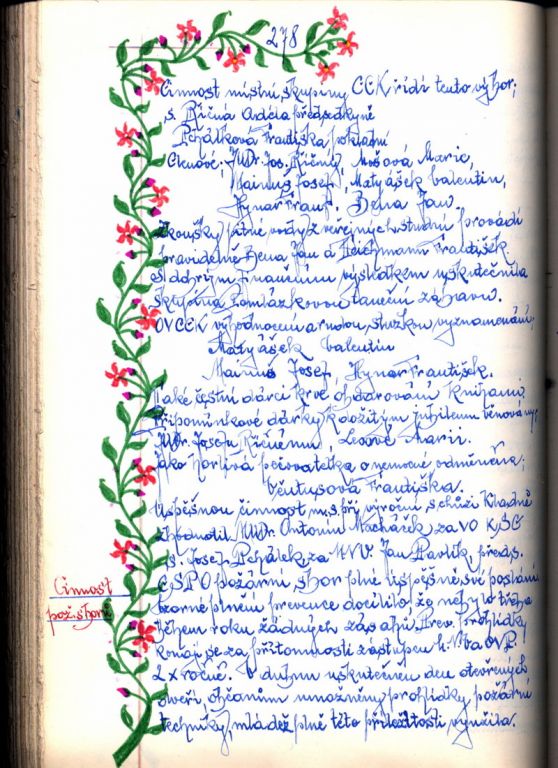 278
Činnost místní skupiny ČČK řídí tento výbor;
s. Říčná Adéla předsedkyně
Pchálková Františka pokladní
Členové; MUDr. Jos. Říčný, Mosová Marie,
Josef, Matyášek Valentin,
Hynar Frant. Bena Jan.
Zkoušky pitné vody z veřejných studní provádí
pravidelně Bena Jan a Teichmann František
S dobrým finančním výsledkem uskutečnila
skupina taneční zábavu.
OV ČČK vyhodnocení a rudou stužkou vyznamenáni;
Matyášek Valentin
Josef, Hynar František.
Také čestní dárci krve obdarováni knihami.
Připomínkové dárky k dožitým jubileím věnovány;
MUDr. Josefu Říčnému Marii.
Jako horlivá pečovatelka o nemocné odměněna;
Františka.
Úspěšnou činnost m. s. při výroční schůzi kladně
zhodnotil MUDr. Antonín Macháček za VO KSČ
s. Josef Pchálek, za MNV. Jan Pavlík před. s.
ČSPO požární sbor plně úspěšně své poslání
vzorné plnění prevence docílilo, že nebylo třeba
během roku žádných zásahů. Prev. prohlídky
konají se za přítomnosti zástupců
2 x ročně. V dubnu uskutečněn den otevřených
dveří, občanům umožněny prohlídky požární
techniky, mládež plně této příležitosti využila.
Činnost
pož. sboru